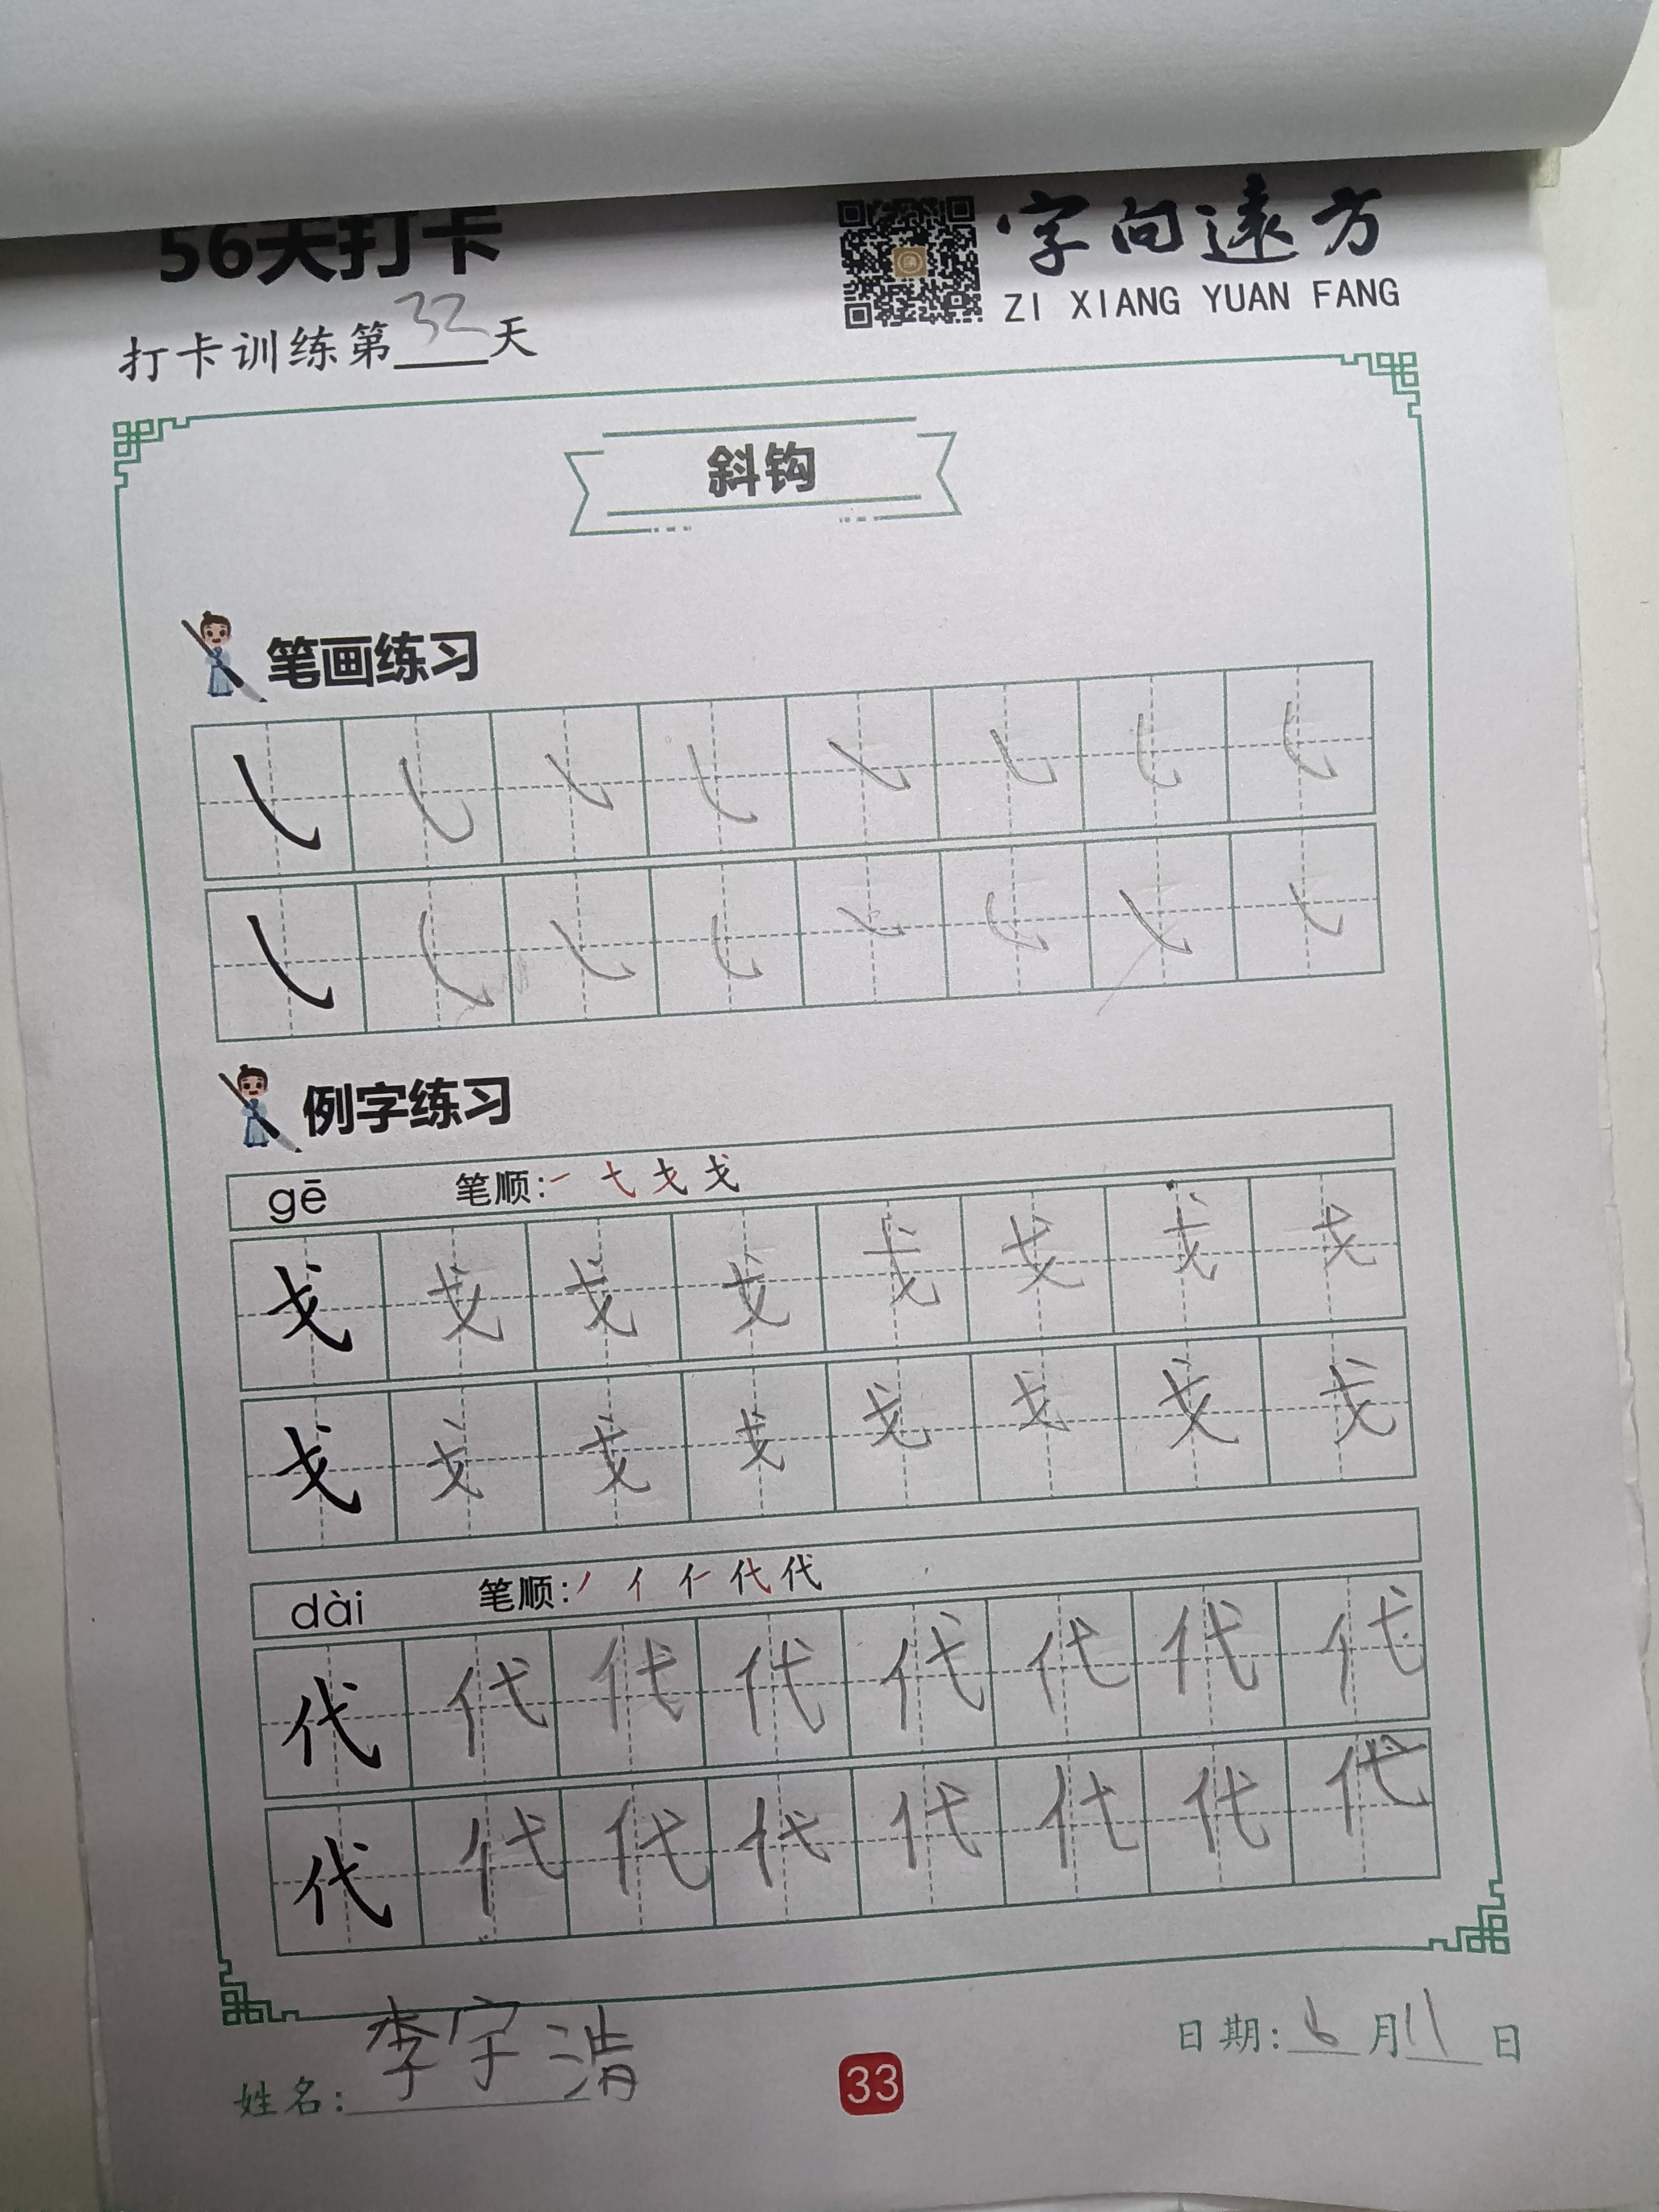 56天打卡
字向遠方
ZI XIANG YUAN FANG
打卡训练第32天
斜钩
笔画练习
㇂ ㇂ ㇂ ㇂ ㇂ ㇂ ㇂ ㇂
㇂ ㇂ ㇂ ㇂ ㇂ ㇂ ㇂ ㇂
例字练习
gē 笔顺:一 弋 戈 戈
戈 戈 戈 戈 戈 戈 戈 戈
戈 戈 戈 戈 戈 戈 戈 戈
dài 笔顺:丿 亻 仁 代 代
代 代 代 代 代 代 代 代
代 代 代 代 代 代 代 代
姓名:李宇清
33
日期:6月11日